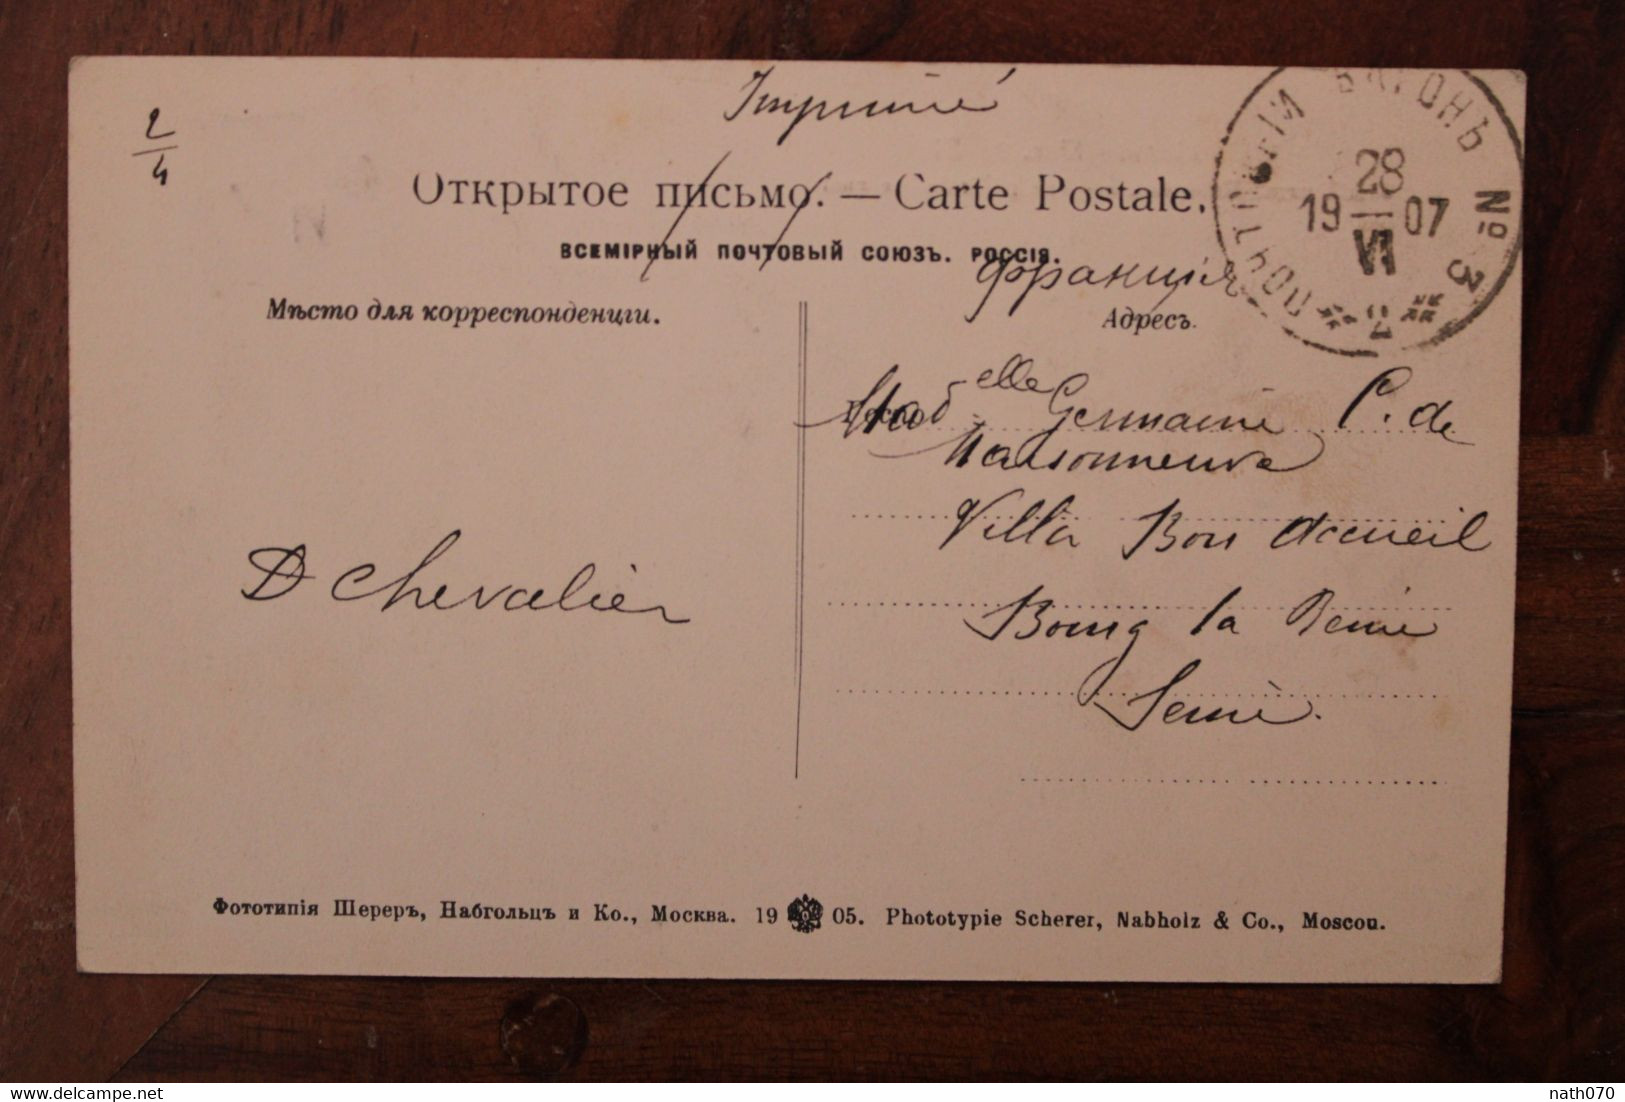 Imprimé
2/4
Открытое письмо. — Carte Postale.
ВСЕМІРНЫЙ ПОЧТОВЫЙ СОЮЗЪ. РОССІЯ.
Франція
ПОЧТОВЫЙ ВАГОНЪ № 3
28
19 — 07
VI
Мѣсто для корреспонденціи.
Адресъ.
Mad elle Germaine C. de
Maisonneuve
Villa Bon Accueil
D Chevalier
Bourg la Reine
Seine.
Фототипія Шереръ, Набгольцъ и Ко., Москва. 19 05. Phototypie Scherer, Nabholz & Co., Moscou.
nath070